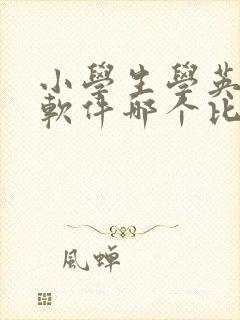 小學生學英
軟件哪个比
風蟬